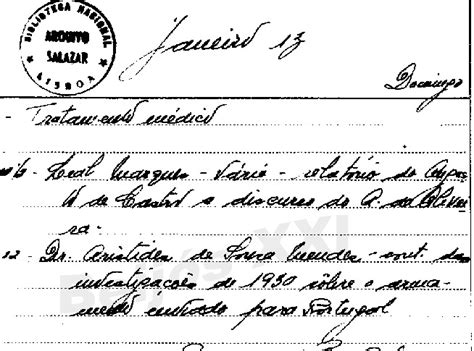 BIBLIOTECA NACIONAL
ARQUIVO
SALAZAR
LISBOA
Janeiro 13
Domingo
- Tratamento médico
Leal Marques - Vária - relatório do
de Castro e discurso do A. de Olivei
ra -
12 - Dr. Aristides de Sousa Mendes - das
investigações de 1930 sôbre o arma-
mento enviado para Portugal